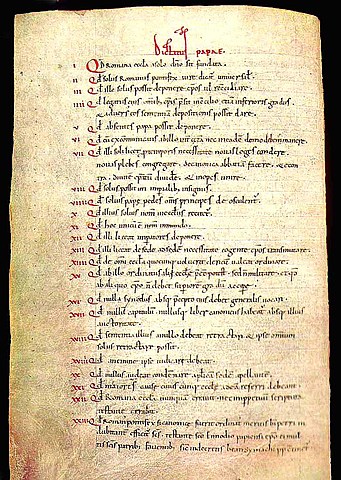 Dictatus papae.
I Qd Romana eccla a solo dno sit fundata.
II Qd solus Romanus pontifex iure dicat universal.
III Qd ille solus possit deponere epos ul reconciliare.
IIII Qd legatus eius omib; epis presit in concilio etiam inferioris gradus
& adversus eos sententiam depositionis possit dare.
V Qd absentes papa possit deponere.
VI Qd cu excommunicatis ab illo int cetera nec in eade domo debem manere.
VII Qd illi soli licet p temporis necessitate novas leges condere
novas plebes congregare, de canonica abbatiam facere, & e con
tra, divite epatum dividere, & inopes unire.
VIII Qd solus possit uti imperialib; insigniis.
VIIII Qd solius papae pedes oms principes deosculent.
X Qd illius solius nom in ecclis recitet.
XI Qd hoc unicu e nom in mundo.
XII Qd illi liceat imperatores deponere.
XIII Qd illi liceat de sede ad sede necessitate cogente epos transmutare.
XIIII Qd de omi eccla quocunq; voluerit clericu valeat ordinare.
XV Qd ab illo ordinatus alii eccle pee potest, sed n militare, & qd
ab aliquo epo n debet superiore gradu accipe.
XVI Qd nulla synodus absq; pcepto eius debet generalis vocari.
XVII Qd nullu capitulu nullusq; liber canonicus habeat absq; illius
auctoritate.
XVIII Qd sententia illius a nullo debeat retractari & ipse omnium
solus retractare possit.
XVIIII Qd a nemine ipse iudicari debeat.
XX Qd nullus audeat condenare aplica sede apellante.
XXI Qd maiores cause cuiuscunq; eccle ad ea referri debeant.
XXII Qd Romana eccla nunqua erravit nec imppetuu scriptura
testante errabit.
XXIII Qd Roman pontifex si canonice fuerit ordinat meritis bi petri in
dubitant efficit scs, testante sco Ennodio papiensi epo ei mul
tis scis patrib; faventib; sic in decretis beati symachi pp contin